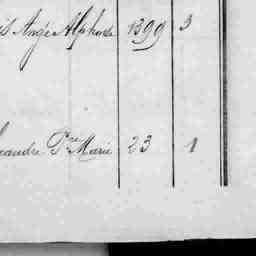 is Ange Alphonse 1399 3
eandre Pre Marie 23 1